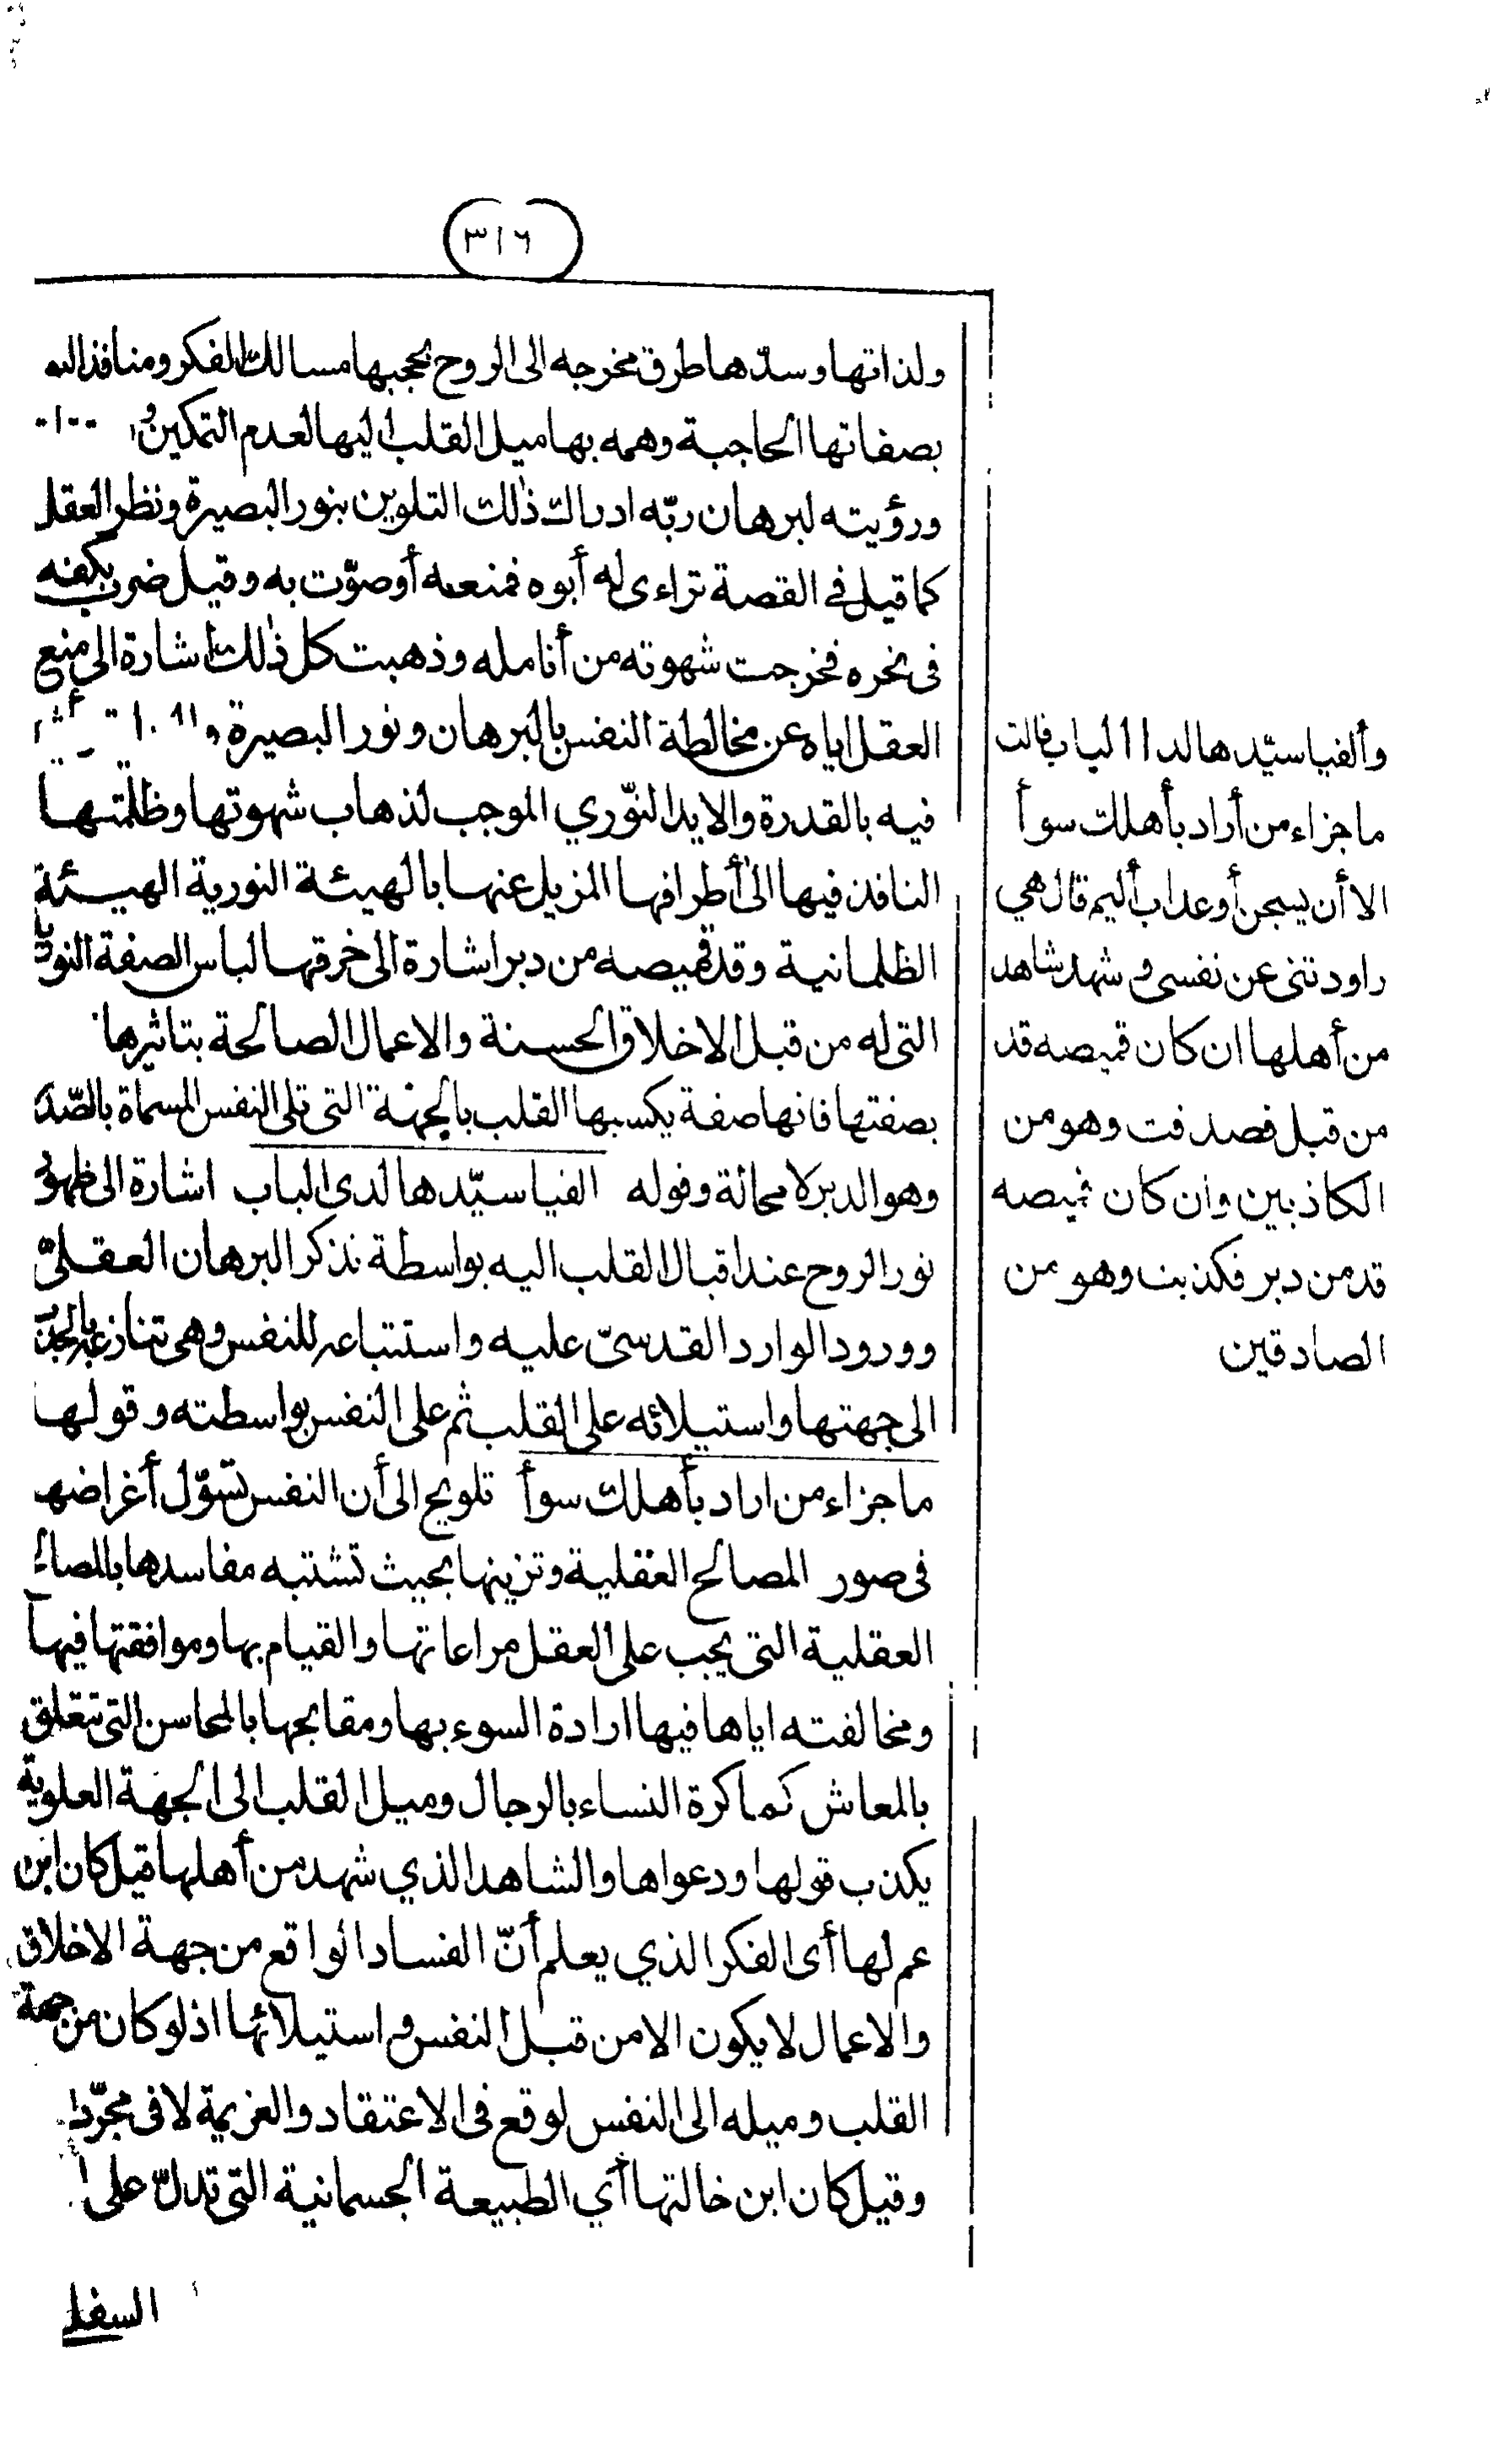 ٣١٦
ولذاتها وسدّها طرق مخرجه الى الروح بحجبها مسالك الفكر ومنافذ
بصفاتها الحاجبة وهمه بها ميل القلب اليها لعدم التمكين
ورؤيته لبرهان ربّه ادراك ذلك التلوين بنور البصيرة ونظر العقل
كما قيل في القصة تراءى له أبوه فمنعه أوصوّت به وقيل ضرب بكفه
فى نحره فخرجت شهوته من أنامله وذهبت كل ذلك اشارة الى منع
العقل اياه عن مخالطة النفس بالبرهان ونور البصيرة
فيه بالقدرة والايد النّوري الموجب لذهاب شهوتها وظلمتها
النافذ فيها الى أطرافها المزيل عنها بالهيئة النورية الهيئة
الظلمانية وقد قميصه من دبر اشارة الى خرقها لباس الصفة النورية
التى له من قبل الاخلاق الحسنة والاعمال الصالحة بتاثيرها
بصفتها فانها صفة يكسبها القلب بالجهة التى تلى النفس المسماة بالصّدر
وهو الدبر لا محالة وقوله الفيا سيّدها لدى الباب اشارة الى ظهور
نور الروح عند اقبال القلب اليه بواسطة تذكر البرهان العقلىّ
وورود الوارد القدسىّ عليه واستتباعه للنفس وهى تنازعه بالجذب
الى جهتها واستيلائه على القلب ثم على النفس بواسطته وقولها
ما جزاء من اراد بأهلك سوأ تلويح الى أن النفس تسوّل أغراضها
فى صور المصالح العقلية وتزينها بحيث تشتبه مفاسدها بالمصالح
العقلية التى يجب على العقل مراعاتها والقيام بها وموافقتها فيها
ومخالفته اياها فيها ارادة السوء بها ومقابحها بالمحاسن التى تتعلق
بالمعاش كمماكرة النساء بالرجال وميل القلب الى الجهة العلوية
يكذب قولها ودعواها والشاهد الذي شهد من أهلها قيل كان ابن
عم لها أى الفكر الذي يعلم أنّ الفساد الواقع من جهة الاخلاق
والاعمال لا يكون الا من قبل النفس واستيلائها اذ لو كان من جهة
القلب وميله الى النفس لوقع فى الاعتقاد والعزيمة لا فى مجرّد
وقيل كان ابن خالتها أي الطبيعة الجسمانية التى تدلّ على
السفل
وألفيا سيّدها لدا الباب قالت
ما جزاء من أراد بأهلك سوأ
الا أن يسجن أو عذاب أليم قال هي
راودتنى عن نفسى وشهد شاهد
من أهلها ان كان قميصه قد
من قبل فصدقت وهو من
الكاذبين وان كان قميصه
قد من دبر فكذبت وهو من
الصادقين